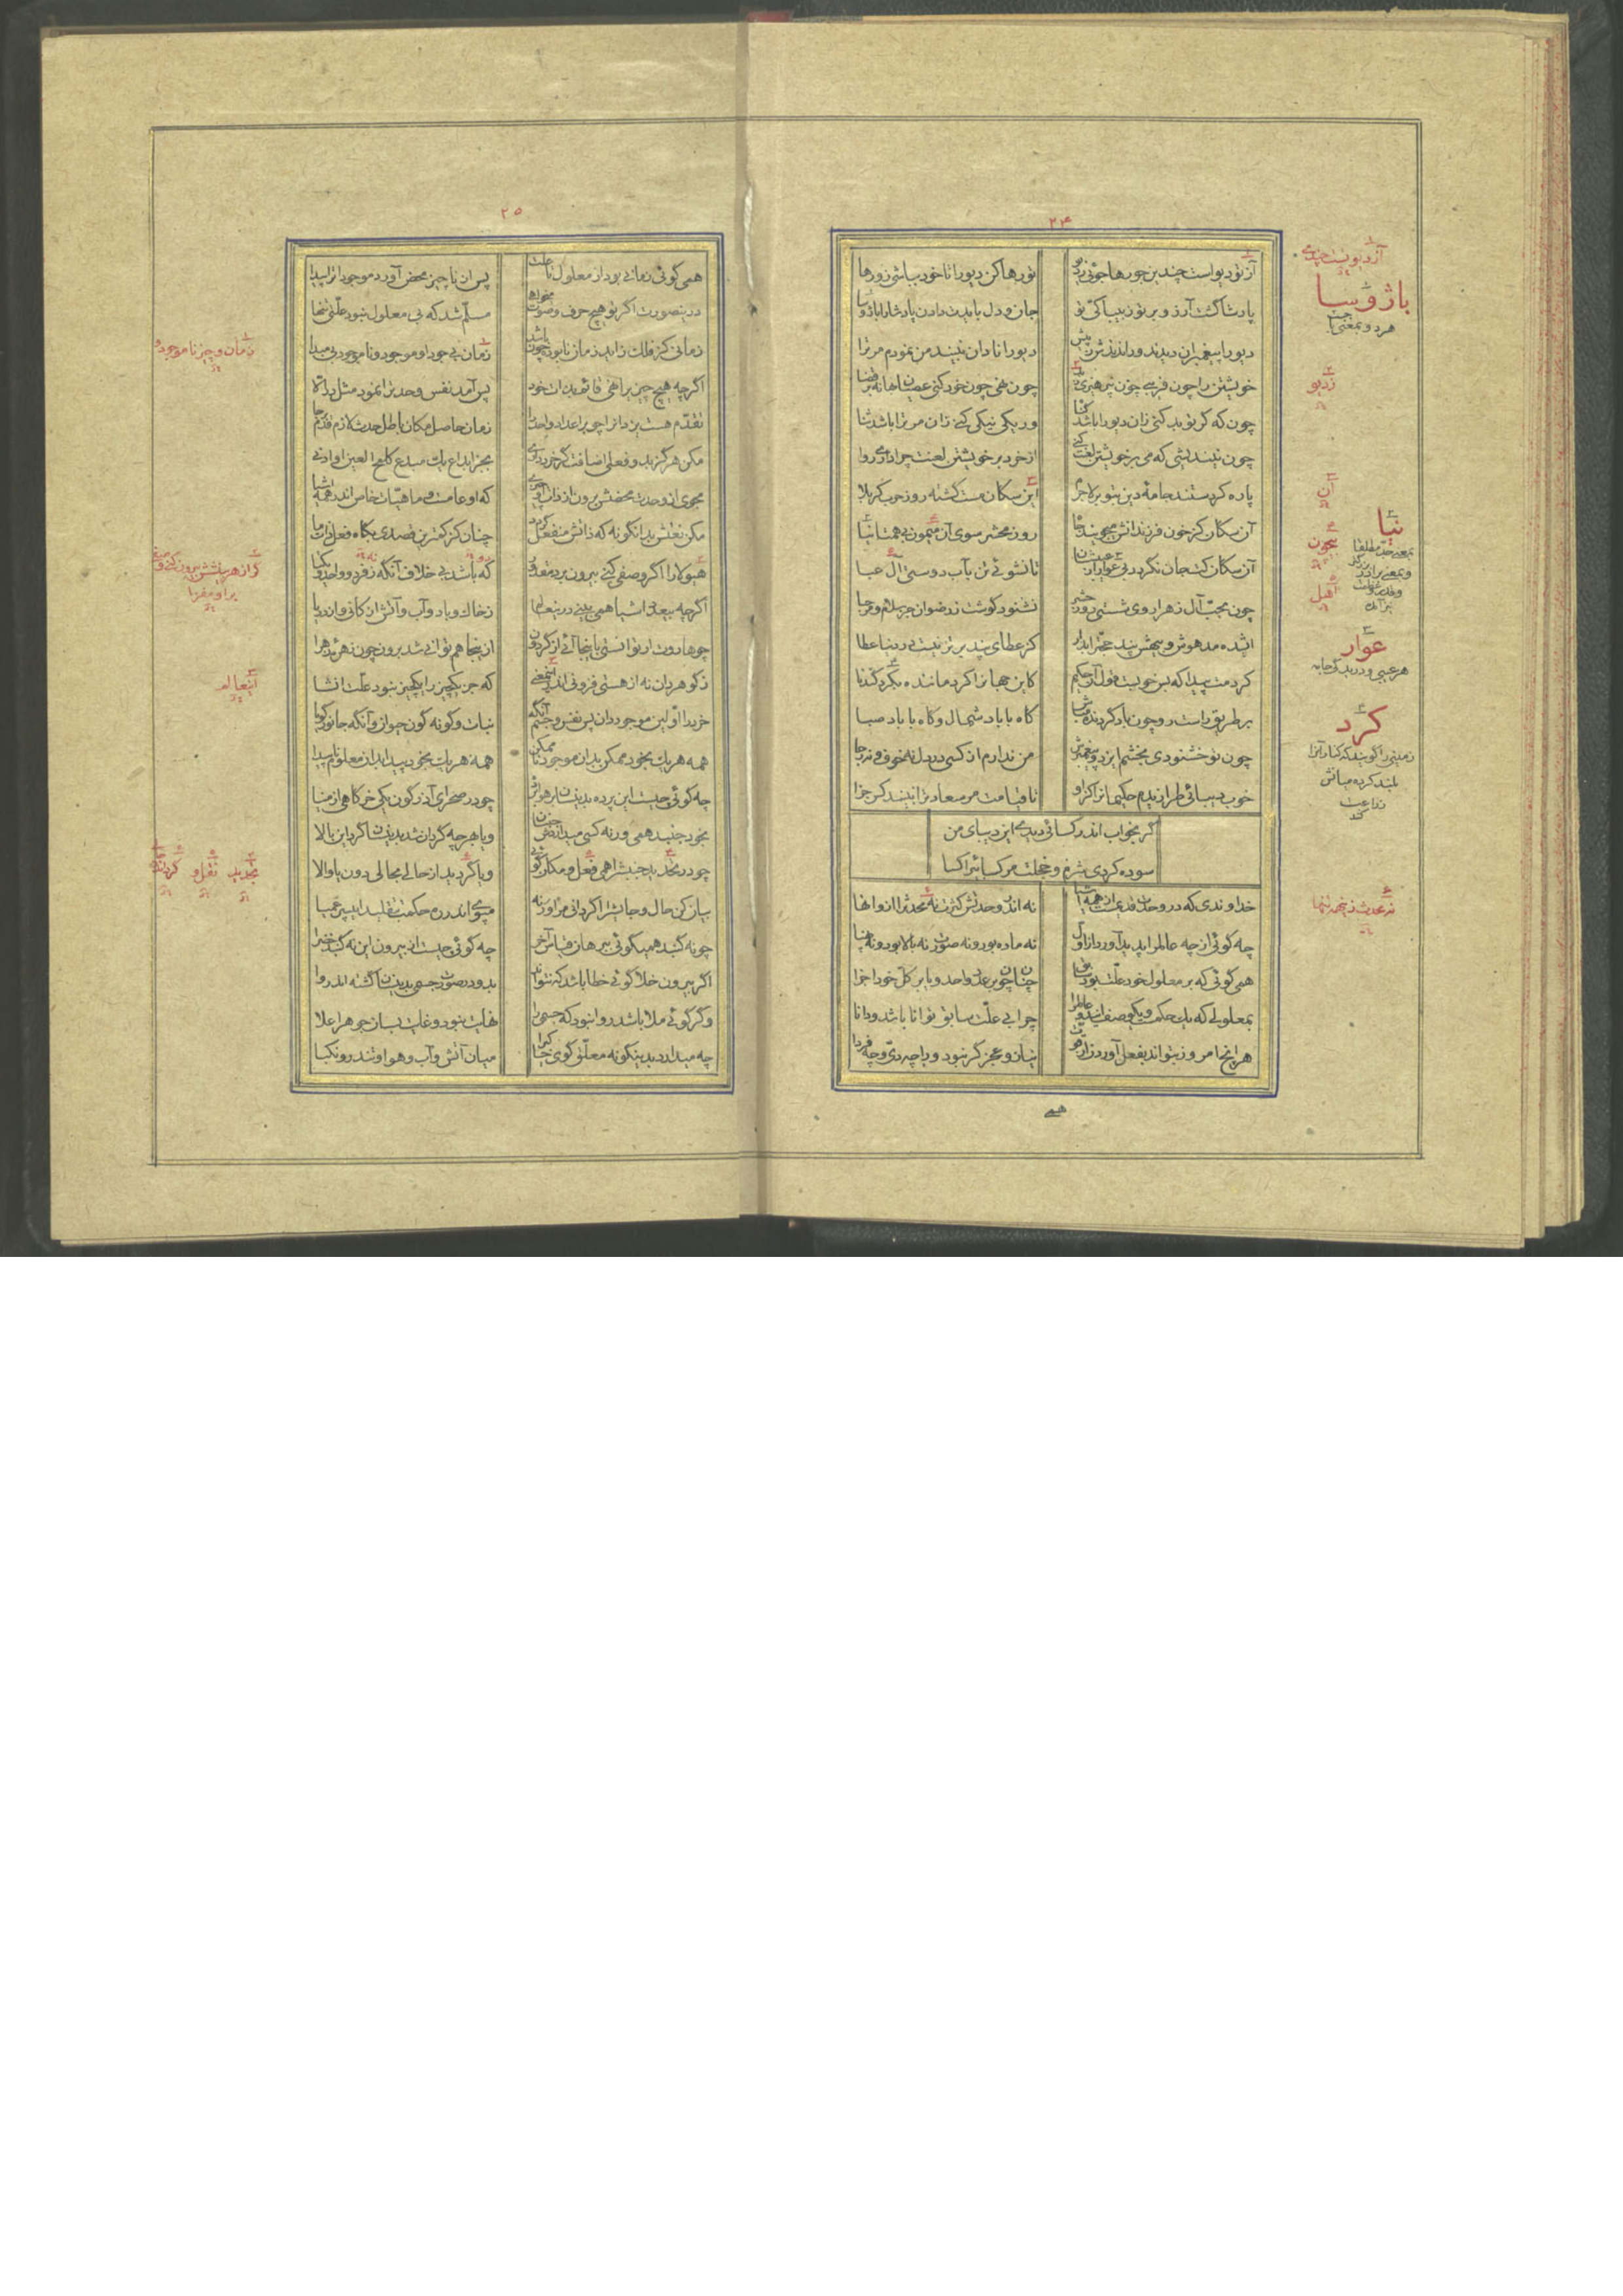 ۲۴
آز تو دیو است چندین چون رها جوئی ز دیو
تو رها کن دیو را تا خود بباشی زو رها
پادشا گشت آرزو بر تو ز بیباکی تو
جان و دل بایدت دادن پادشا را باژ و سا
دیو را پیغمبران دیدند و راندندش ز پیش
دیو را نادان نبیند من نمودم مر ترا
خویشتن را چون فریبی چون نپرهیزی ز بد
چون نهی چون خود کنی عصیان بهانه بر قضا
چون که گر تو بد کنی زان دیو را باشد گناه
ور یکی نیکی کنی زان مر ترا باشد ثنا
چون نیندیشی که می بر خویشتن لعنت کنی
از خود بر خویشتن لعنت چرا داری روا
پاره کردستند جامه دین بتو بر لاجرم
این سگان مست گشته روز حرب کربلا
آن سگان کز خون فرزندانش میجویند جا
روز محشر سوی آن میمون بی همتا نیا
آن سگان کت جان نگردد بی عوار از عیبشان
تا نشوئی تن بآب دوستی آل عبا
چون محب آل زهرا روی شستی روز حشر
نشنود گوشت ز رضوان جز سلام و مرحبا
ای شده مدهوش و بیهش پند حجت را بدار
کز عطای پند برتر نیست در دنیا عطا
کردمت پیدا که بس خوبست قول آن حکیم
کاین جهان را کرد مانند بکرد گندنا
بر طریق راست رو چون باد گردنده مباش
گاه با باد شمال و گاه با باد صبا
چون تو خشنودی بخشم ایزد و پیغمبرش
من ندارم از کسی در دل نه خوف و نه رجا
خوب دیبائی طرازیدم حکیمان را کز او
تا قیامت مر سعادت را نبیند کس جزا
گر بخواب اندر کسائی دیدی این دیبای من
سوده کردی شرم و خجلت مر کسائی را کسا
خداوندی که در وحدت قدیمست از همه اشیا
نه اندر وحدتش کثرت نه محدث زین همه تنها
چه گوئی از چه عالم را پدید آورد از اول
نه ماده بود و نه صورت نه بالا بود و نه پهنا
همی گوئی که بر معلول خود علت بود سابق
چنان چون بر عدد واحد و یا بر کل خود اجزا
بمعلولی که یک حکمت و یک وصف است عالم را
چرا بی علت سابق توانا باشد و دانا
هر آنچ امروز نتواند بفعل آورد از قوت
نیاز و عجز گر نبود ورا چه دی و چه فردا
همی
آز دیویست چندی
باژ و سا
هر دو بمعنی
ز دیو
آن
نیا
بیچون
اهل
عوار
هر عیبی و دریدگی جامه
کرد
زمینی را گویند که کناره آنرا
بلند کرده میانش
زراعت
کنند
نه محدث زین همه تنها
۲۵
همی گوئی زمانی بود از معلول تا علت
پس از ناچیز محض آورد موجودات را پیدا
در ینصورت اگر تو هیچ حرف و صوت میخواهی
مسلم شد که بی معلول نبود علتی تنها
زمانی کز فلک زاید زمان نابوده چون باشد
زمان بی جود او موجود و ناموجود بی مبدا
اگرچه هیچ چیزی را نهی قائم بذات خود
پس آمد نفس وحدت را نمود مثل در آلا
تقدم هست یزدان را چو بر اعداد واحد را
زمان حاصل مکان باطل حدث لازم قدم برجا
مکن هرگز بدو فعلی اضافت گر خرد داری
بجز ابداع یک مبدع کلمح العین او ادنی
مجوی از وحدت محضش برون از ذات او چیزی
که او عامست و ماهیات خاص اندر همه اشیا
چنان کز کمترین قصدی بگاه فعل ذات ما
هیولا را اگر وصفی کنی بیرون بر مقدور
که باشد بی خلاف آنگه ز فرد و واحد و یکتا
اگرچه بیعدد اشیا همی بینی درین عالم
ز خاک و باد و آب و آتش از کانی و از دریا
چو هاروت ار توانستی که اینجا آئی از گردون
ازینجا هم توانی شد برون چون زهره زهرا
ز گوهر دان نه از هستی فزونی اندرین معنی
که جز یکچیز را یکچیز نبود علت انشا
خرد دان اولین موجود زان پس نفس و جسم آنگه
نبات و گونه گون حیوان و آنگه جانور گویا
همه هر یک بخود ممکن بدان موجود ناممکن
همه هر یک بخود پیدا بدان معلوم ناپیدا
چه گوئی چیست این پرده بدینسان بر هوا برشد
چو در صحرای آذرگون یکی خرگاهی از مینا
بخود جنبد همی ورنه کسی میداردش جنبان
و یا بهر چه گردان شد بدینسان گرد این بالا
چو در تحدید جنبش را همی فعل و مکان گوئی
و یا گردیدن از حالی بحالی دون یا والا
بیان کن حال و جایش را اگر دانی مرا ورنه
مپوی اندر ره حکمت بتقلید ای پسر عمیا
چو نه گنبد همیگوئی ببرهان و قیاس آخر
چه گوئی چیست از بیرون این نه گنبد خضرا
اگر بیرون خلا گوئی خطا باشد که نتواند
بدو در صورت جسمی بدینسان گشته اندروا
وگر گوئی ملا باشد روا نبود که جسمی را
نهایت نبود و غایت بسان جوهر اعلا
چه میدارد بدینگونه معلق گوی خاکی را
میان آتش و آب و هوا و تندر و نکبا
زمان و چیز ناموجود و
گر از هر بینشش بیرون کنی وصفی
برا و مفزا
این عالم
بتحدید نقل و گردیدن